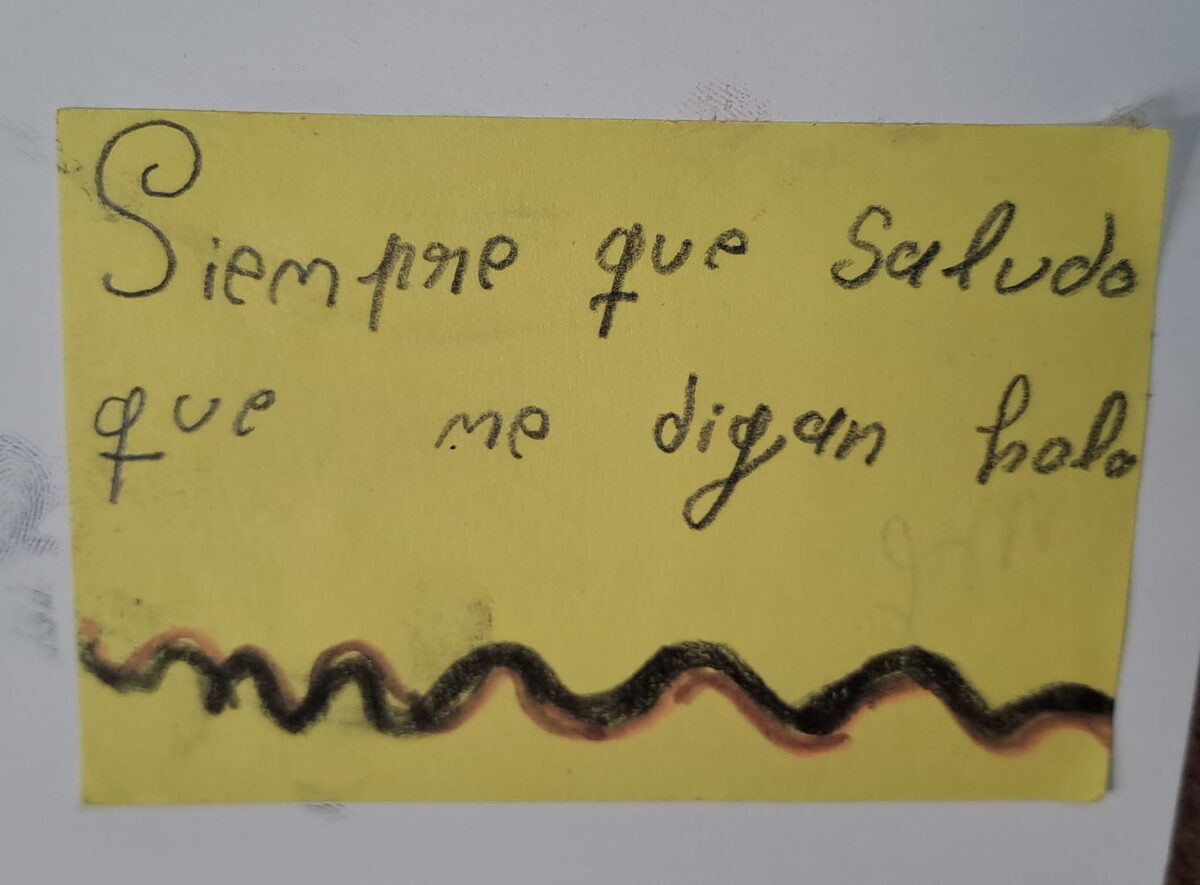 Siempre que Saludo
que me digan hola